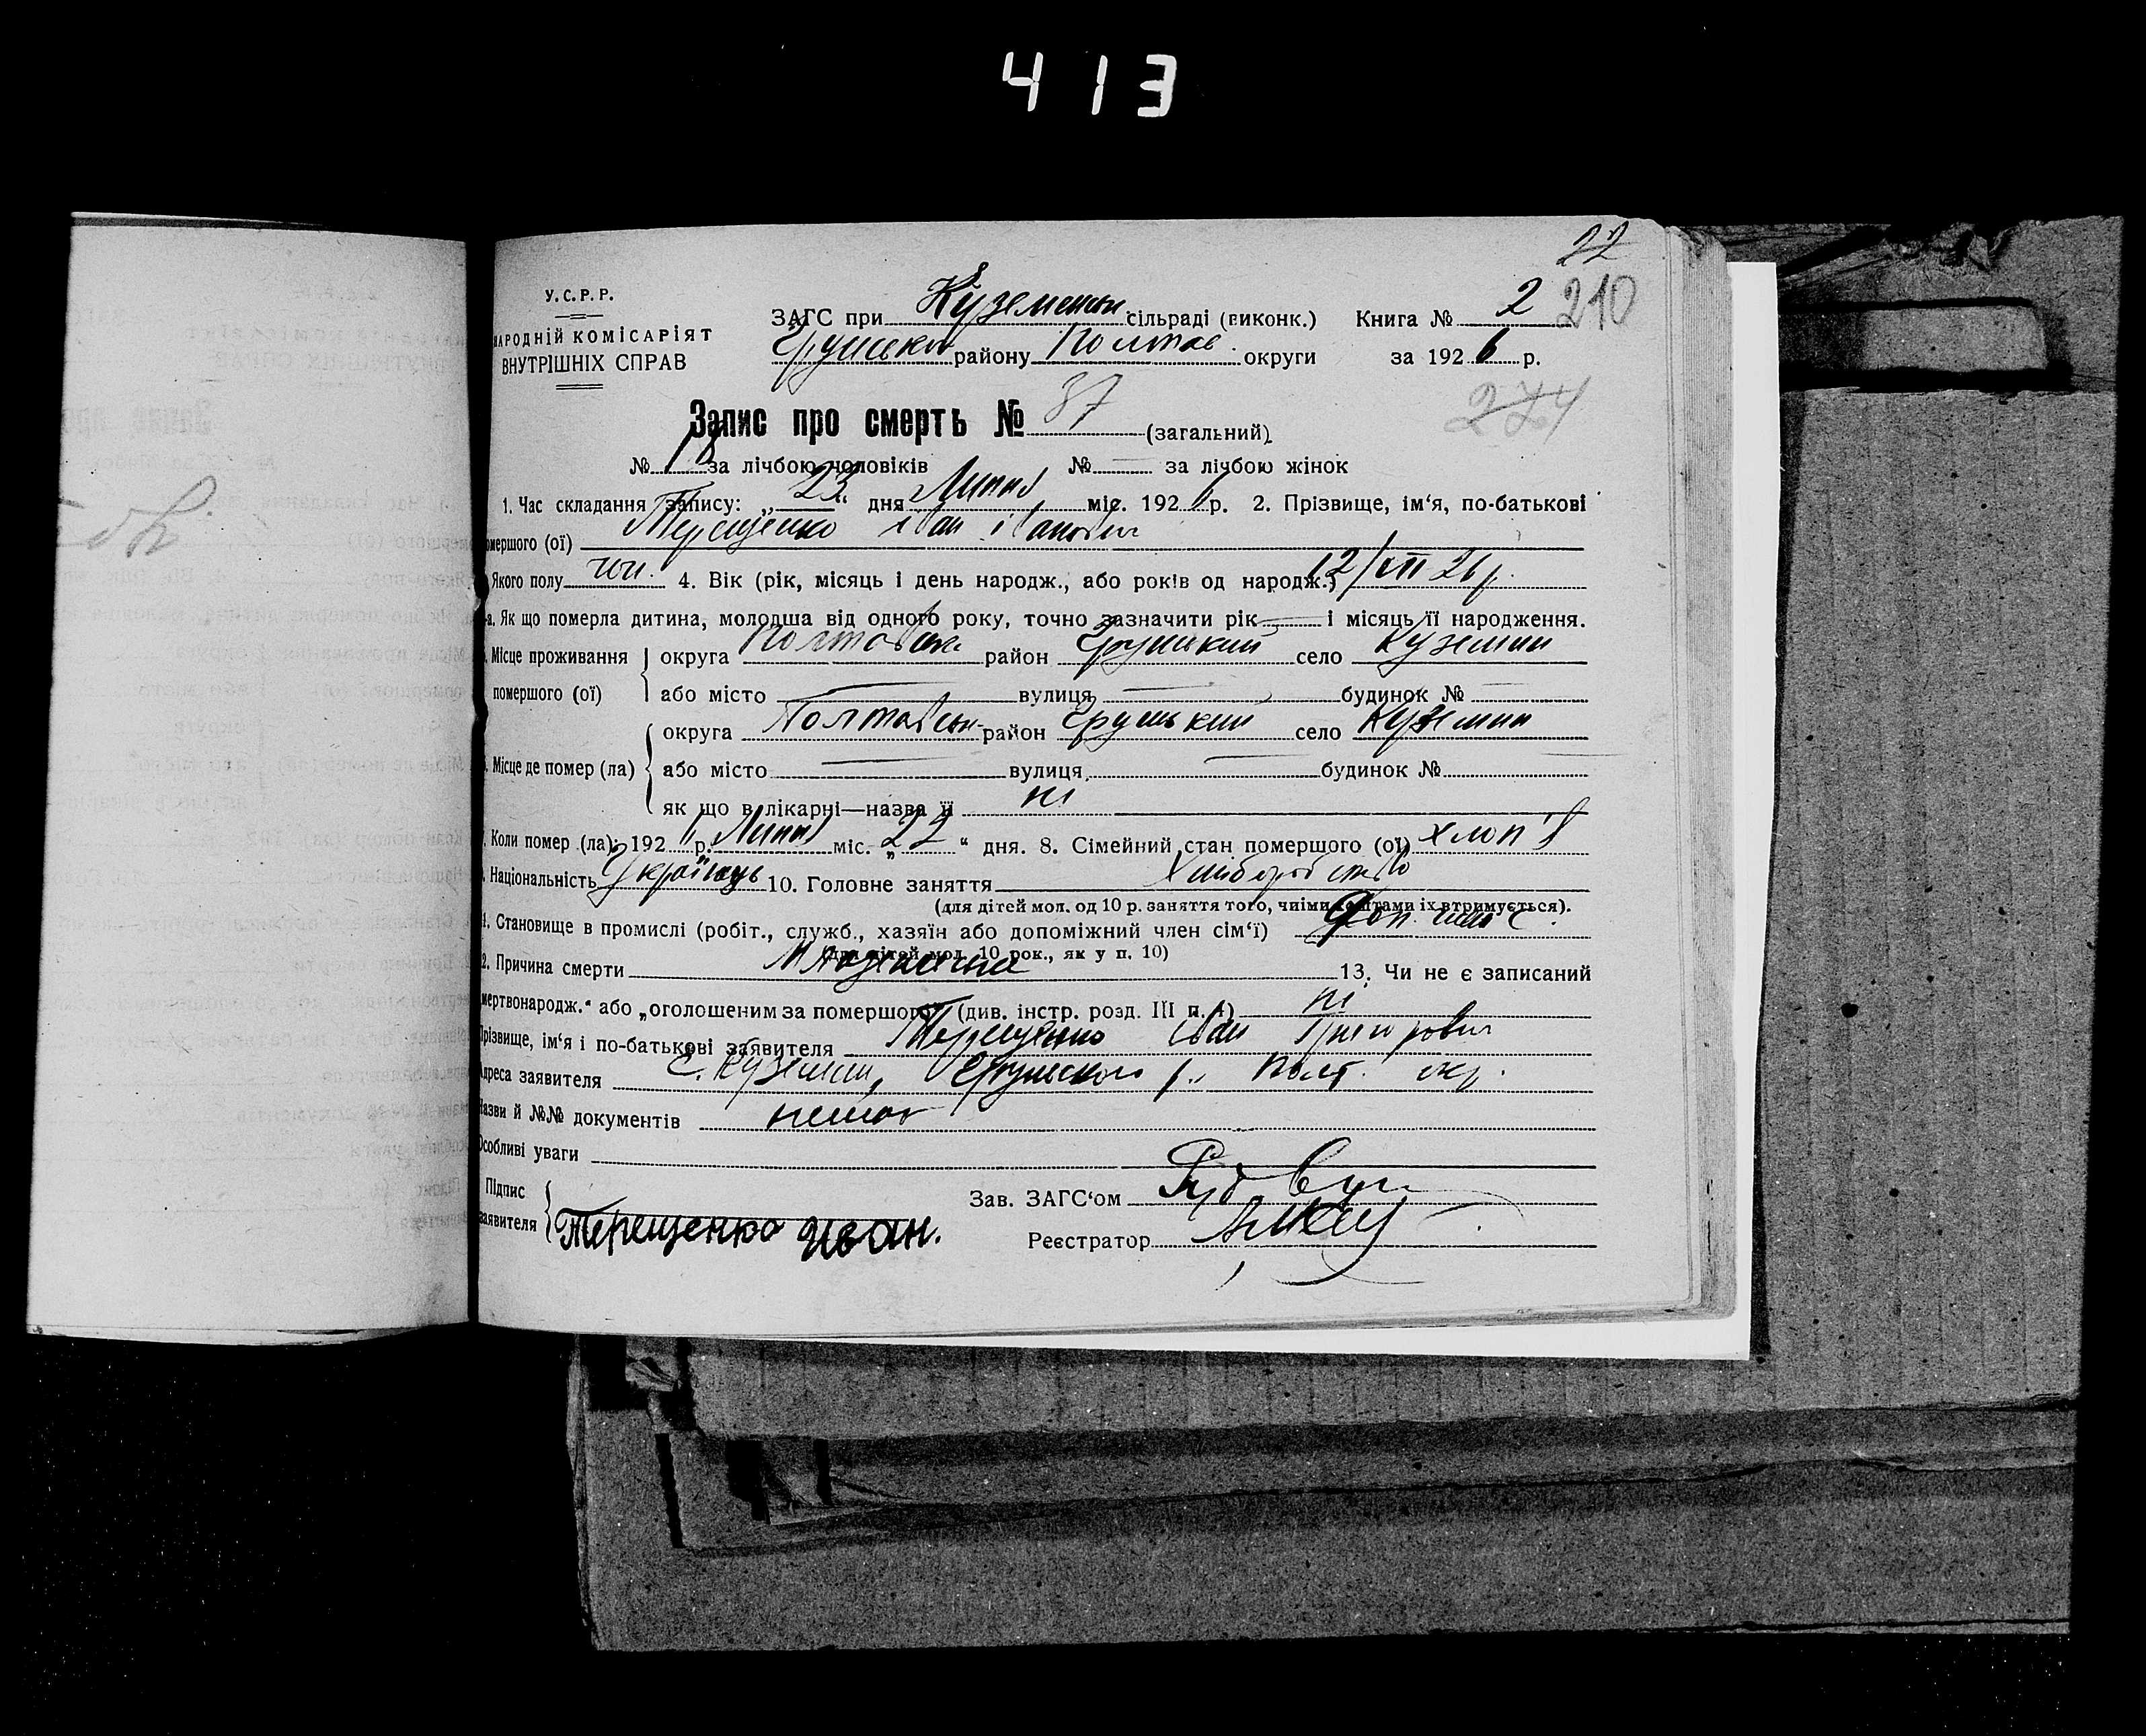 413
22
210
У.С.Р.Р.
НАРОДНІЙ КОМІСАРІЯТ
ВНУТРІШНІХ СПРАВ
ЗАГС при Куземенськ. сільраді (виконк.) Книга № 2
Грунськ району Полтав. округи за 1926 р.
274
Запис про смерть № 37 (загальний)
№ 18 за лічбою чоловіків № — за лічбою жінок
1. Час складання запису: „23“ дня Липня міс. 192 р. 2. Прізвище, ім‘я, по-батькові
помершого (ої) Терещенко Іван Іванович
Якого полу чол. 4. Вік (рік, місяць і день народж., або років од народж.) 12/VII 26 р.
а. Як що померла дитина, молодша від одного року, точно зазначити рік — і місяць її народження.
Місце проживання помершого (ої) округа Полтавська район Грунський село Куземин
або місто — вулиця — будинок № —
Місце де помер (ла) округа Полтавськ. район Грунський село Куземин
або місто — вулиця — будинок №
як що в лікарні—назва її ні
Коли помер (ла): 192 р. Липня міс. „22“ дня. 8. Сімейний стан помершого (ої) хлоп'я
Національність Українець 10. Головне заняття Хліборобство
(для дітей мол. од 10 р. заняття того, чиїми коштами їх втримується).
1. Становище в промислі (робіт., служб., хазяїн або допоміжний член сім‘ї) Доп. член с.
(для дітей мол. 10 рок., як у п. 10)
2. Причина смерти 13. Чи не є записаний
мертвонародж.“ або „оголошеним за помершого“ (див. інстр. розд. III п. 4) ні
Прізвище, ім‘я і по-батькові заявителя Терещенко Іван Григорович
Адреса заявителя С. Куземин, Грунського р., Полт. окр.
Назви й №№ документів немає
Особливі уваги
Підпис заявителя Терещенко Иван.
Зав. ЗАГС‘ом
Реєстратор